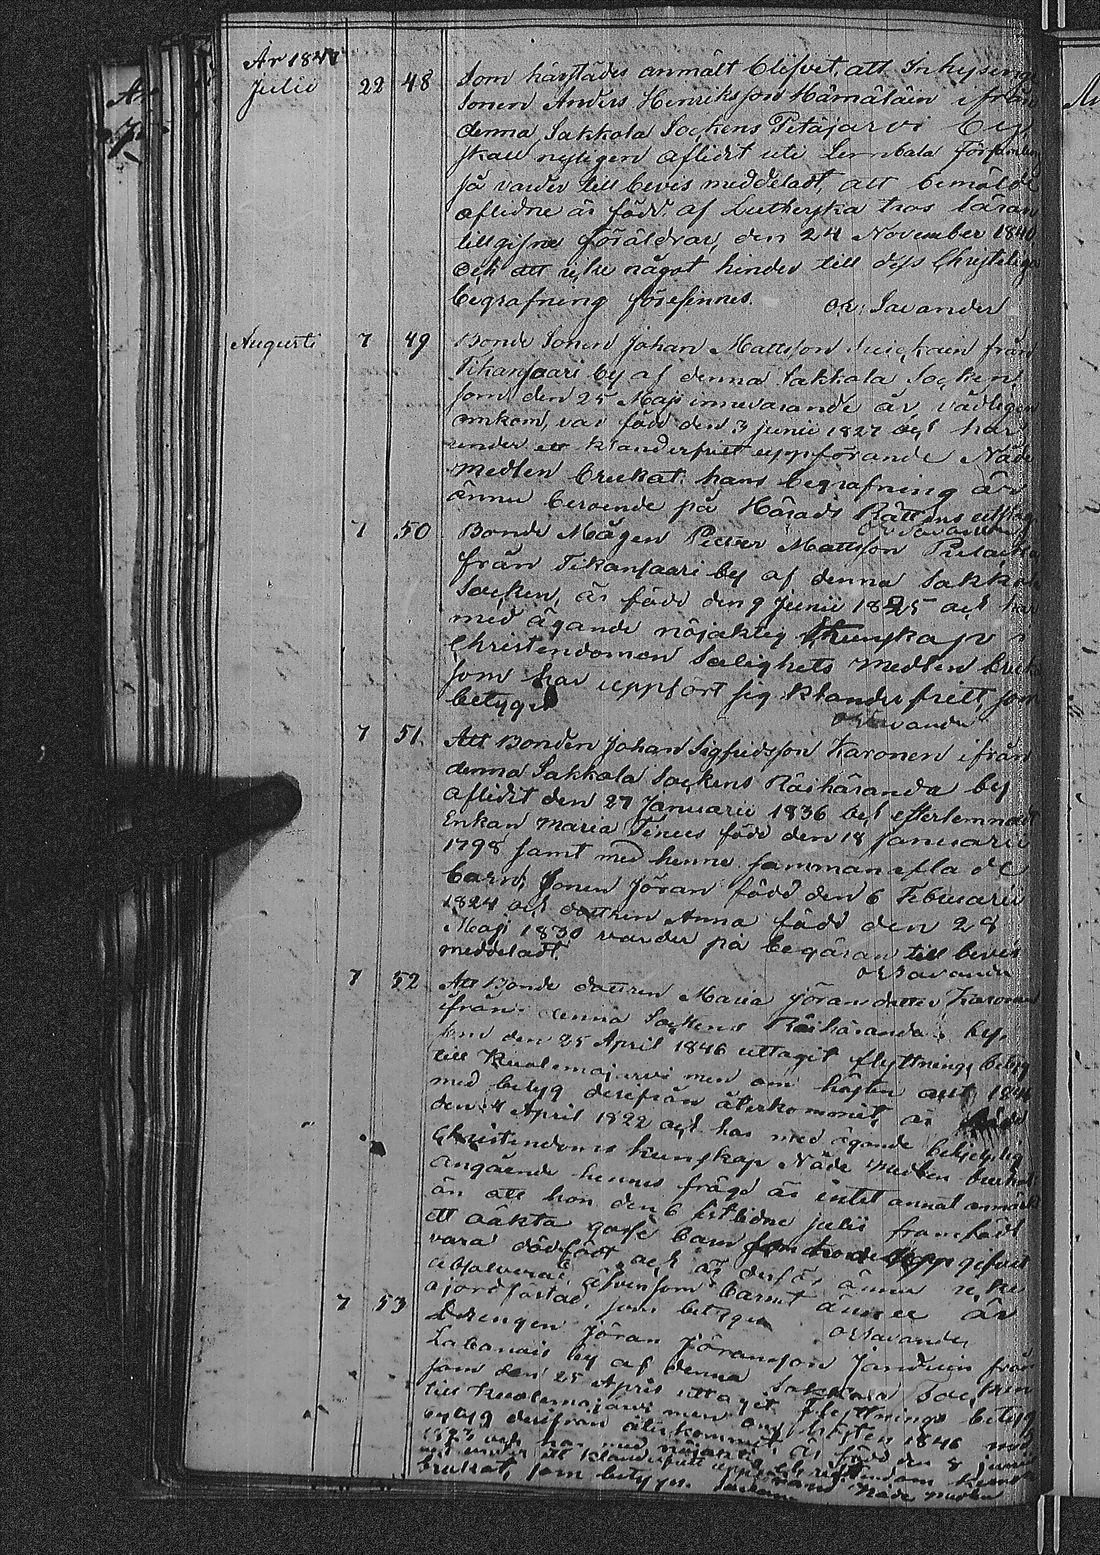 År 1847
Julii 22 48 Som härstädes anmält blefvet, att Inhysing
Sonen Anders Henriksson Hämäläin ifrån
denna Sakkola Sockens Petäjärvi by
skall nyligen aflidit uti Lembala Församling
så varder till bevis meddeladt, att bemälde
aflidne är född af Lutherska tros läran
tillgifne föräldrar, den 24 November 1840
och att icke något hinder till dess Christeliga
begrafning förefinnes. OE: Savander
Augusti 7 49 Bonde Sonen Johan Mattsson från
Tikansaari by af denna Sakkola Socken,
som den 25 Maji innevarande år vådligen
omkom, var född den 3 Junii 1827 och har
under ett klanderfritt uppförande Nåde
medlen brukat, hans begrafning är
ännu beroende på Härads Rättens utslag
OE Savander
7 50 Bonde Mågen Petter Mattsson
från Tikansaari by af denna Sakkola
Socken, är född den 9 Junii 1825 och har
med ägande nöjaktig kunskap i
Christendomen Salighets medlen bruk
som har uppfört sig klanderfritt, som
betygas
OE Savander
7 51 Att Bonden Johan Sigfredsson Karonen ifrån
denna Sakkola Sockens Räihäranda by
aflidit den 27 Januarii 1836 och efterlemnadt
Enkan Maria född den 18 Januarii
1798, samt med henne sammanaflade
barn, Sonen Jöran född den 6 Februarii
1824 och dottren Anna född den 28
Maji 1830 varder på begäran till bevis
meddeladt.
OE Savander
7 52 Att Bonde dottren Maria Jöransdotter Karonen
ifrån denna Sockens Räihäranda by,
som den 25 April 1846 uttagit flyttnings betyg
till Kuolemajärvi men om hösten 1846
med betyg derifrån återkommit, är född
den 4 April 1822 och har med ägande behjelplig
Christendoms kunskap Nåde medlen brukat
angående hennes frägd är intet annat anmärkt
än att hon den 6 sistlidne Julii framfödt
ett oäkta gosse barn gifvit
vara dödfödt och är derför ännu icke
absolverad, äfvensom barnet ännu är
ojordfästad, som betygas
OE Savander
7 53 Drengen Jöran Jöransson från
by af denna Sakkola Socken
som den 25 April uttagit Flyttnings betyg
till Kuolemajärvi men om hösten 1846 med
betyg derifrån återkommit, är född den 8 Junii
1823 och har med nöjaktig Christendoms kunskap
och under ett klanderfritt uppförande Nåde medlen
brukat, som betygas.